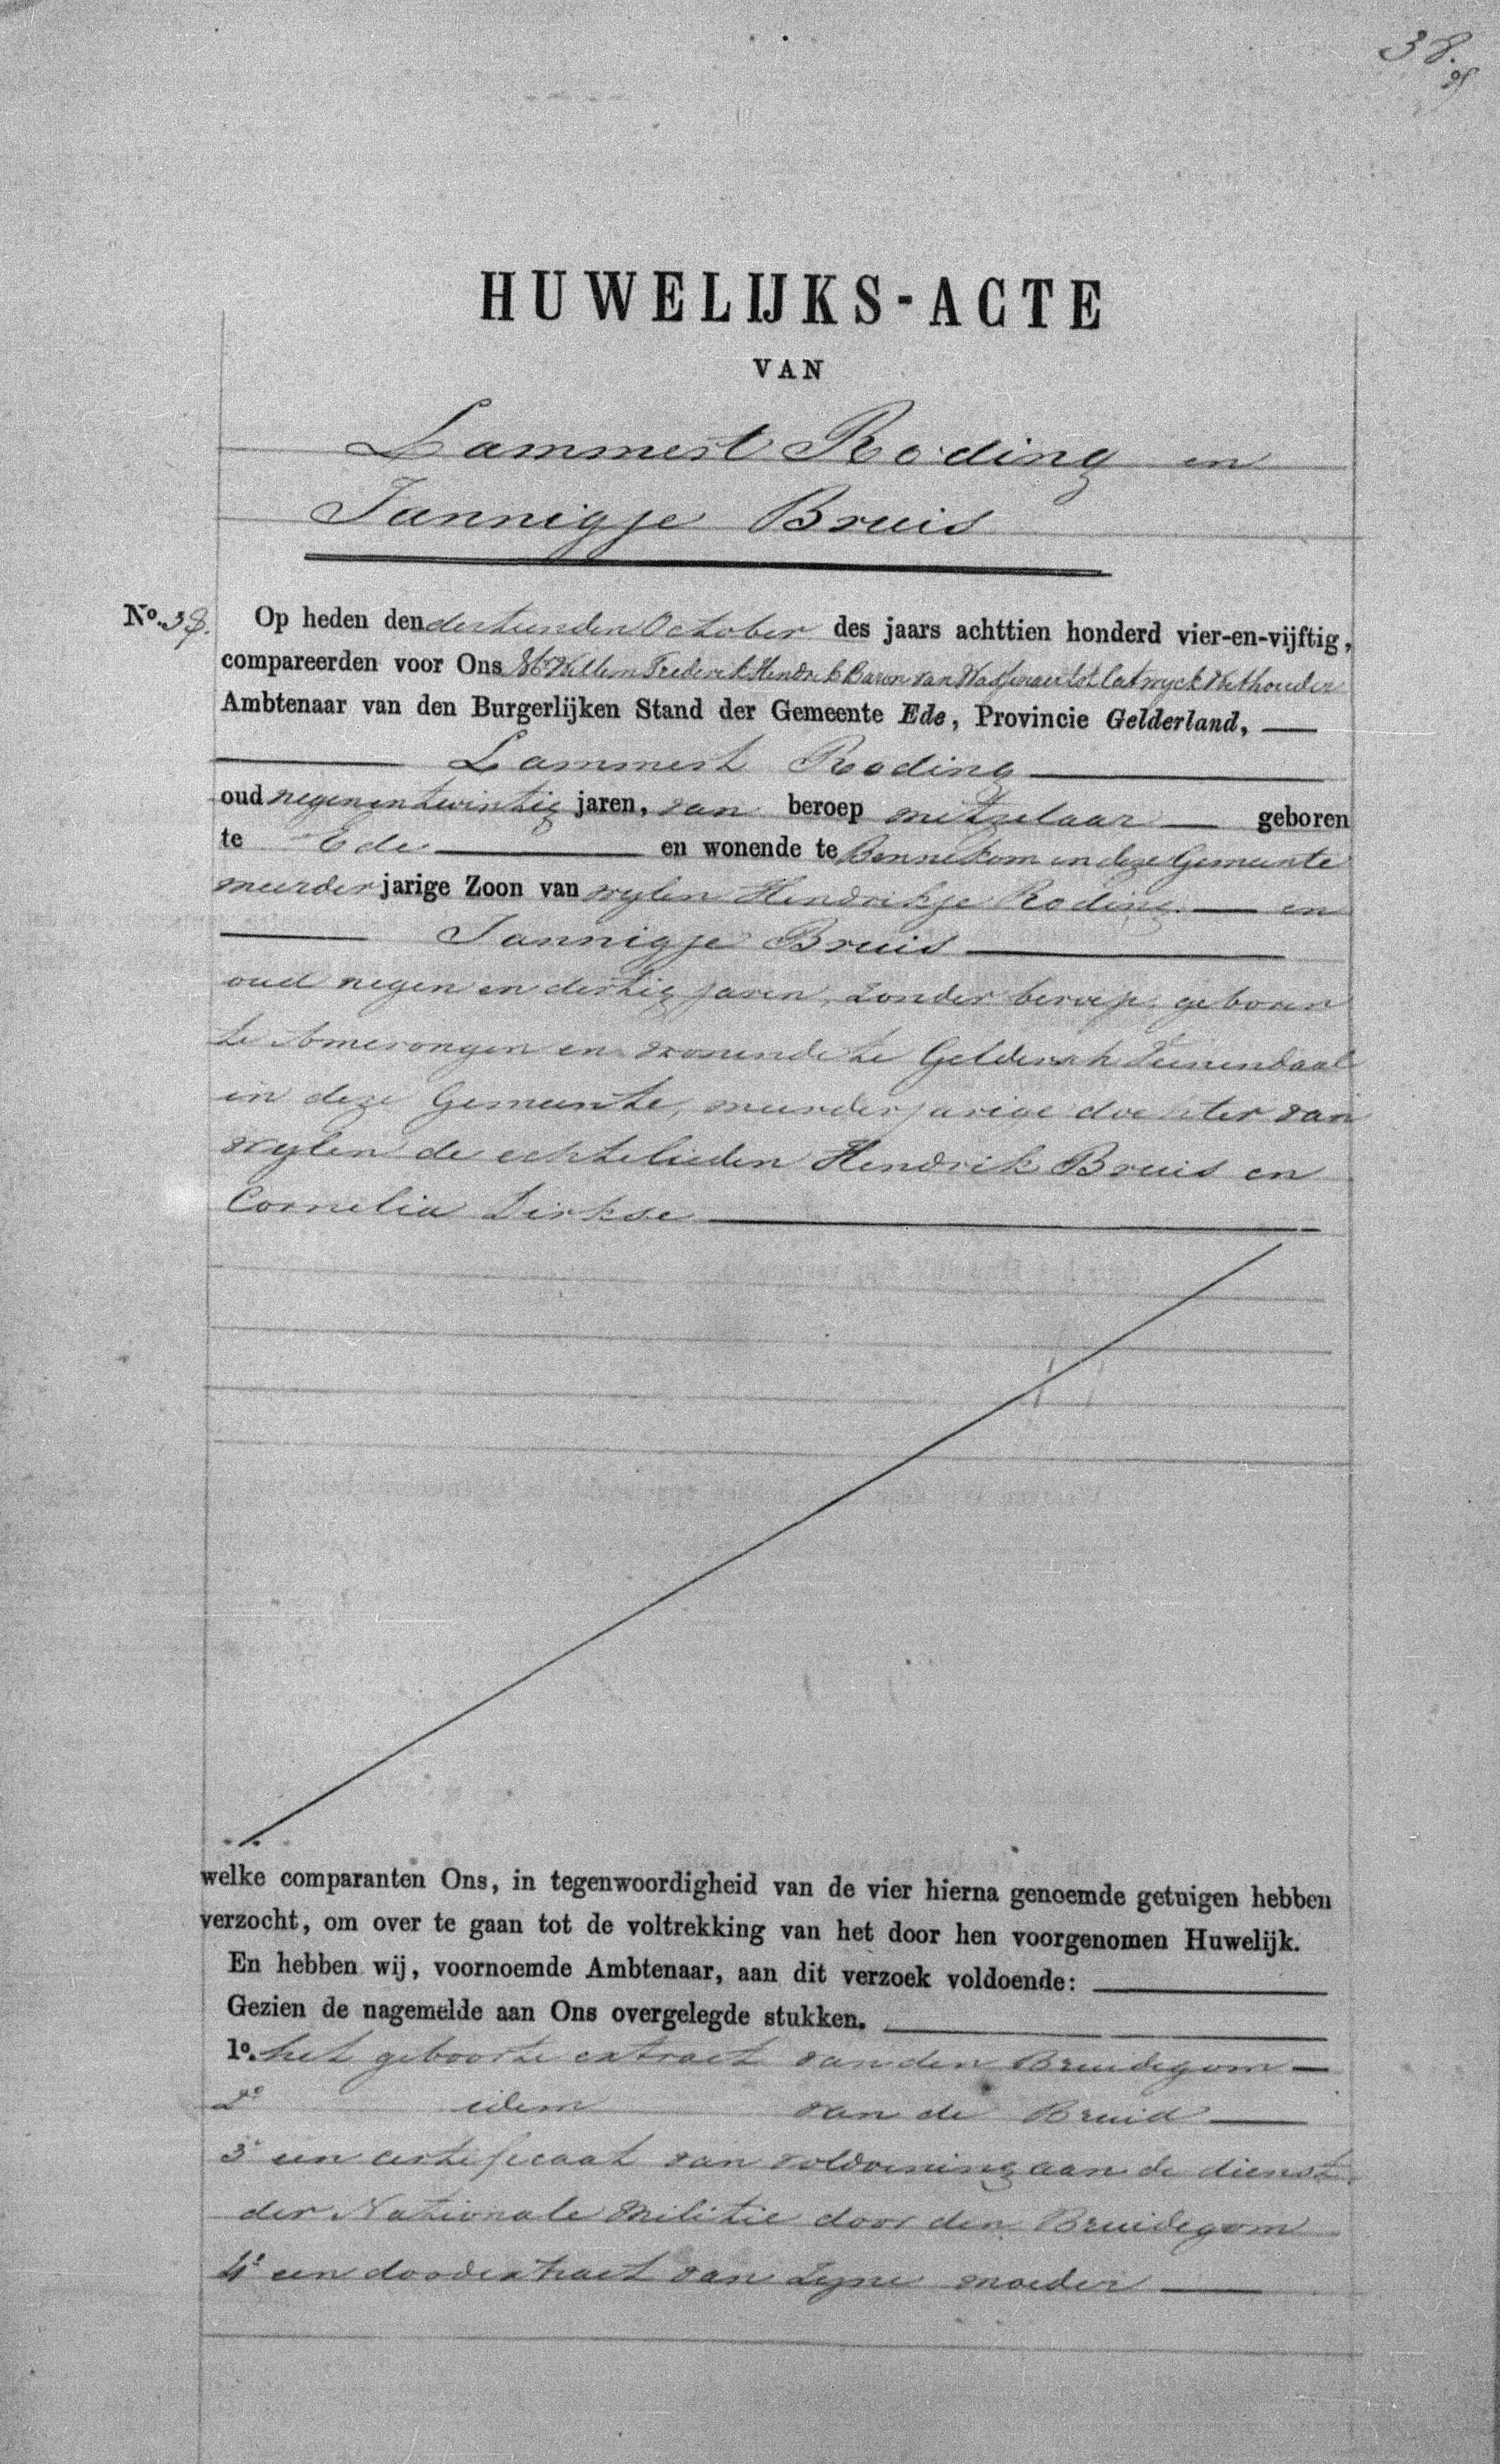 38.
HUWELIJKS-ACTE
VAN
Lammert Roding en
Jannigje Bruis
No. 38. Op heden den dertienden October des jaars achttien honderd vier-en-vijftig,
compareerden voor Ons Mr Willem Frederik Hendrik Baron van Wassenaer tot Catwyck Wethouder
Ambtenaar van den Burgerlijken Stand der Gemeente Ede, Provincie Gelderland,
Lammert Roding
oud negenentwintig jaren, van beroep metzelaar geboren
te Ede en wonende te Bennekom in deze Gemeente
meerderjarige Zoon van wylen Hendrikje Roding en
Jannigje Bruis
oud negen en dertig jaren, zonder beroep, geboren
te Amerongen en wonende te Geldersch Veenendaal
in deze Gemeente, meerderjarige dochter van
wylen de echtelieden Hendrik Bruis en
Cornelia Dirkse
welke comparanten Ons, in tegenwoordigheid van de vier hierna genoemde getuigen hebben
verzocht, om over te gaan tot de voltrekking van het door hen voorgenomen Huwelijk.
En hebben wij, voornoemde Ambtenaar, aan dit verzoek voldoende:
Gezien de nagemelde aan Ons overgelegde stukken.
1o. het geboorte extract van den Bruidegom
2o idem van de Bruid
3o een certificaat van voldoening aan de dienst
der Nationale Militie door den Bruidegom
4o een doodextract van zyne moeder